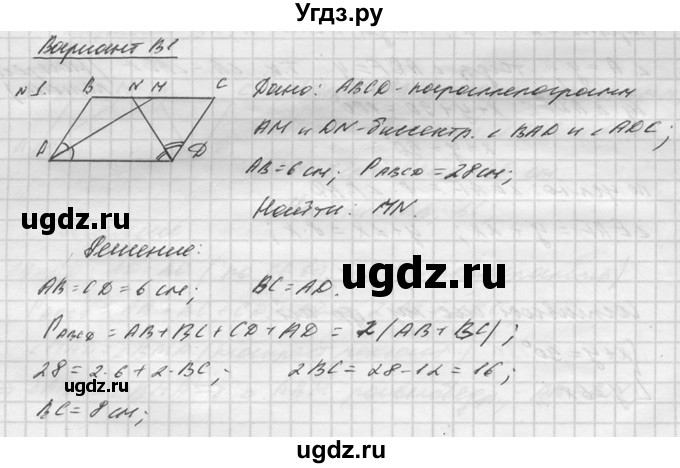 Угдз.ру
Вариант В1
№1.
B N M C
A D
Дано: ABCD - параллелограмм
AM и DN - биссектр. ∠BAD и ∠ADC;
AB = 6 см; P ABCD = 28 см;
Найти: MN.
ugdz.ru
ugdz.ru
Решение:
AB = CD = 6 см; BC = AD.
P ABCD = AB + BC + CD + AD = 2(AB + BC);
28 = 2·6 + 2·BC; 2BC = 28 - 12 = 16;
BC = 8 см;
ugdz.ru ugdz.ru
ugdz.ru